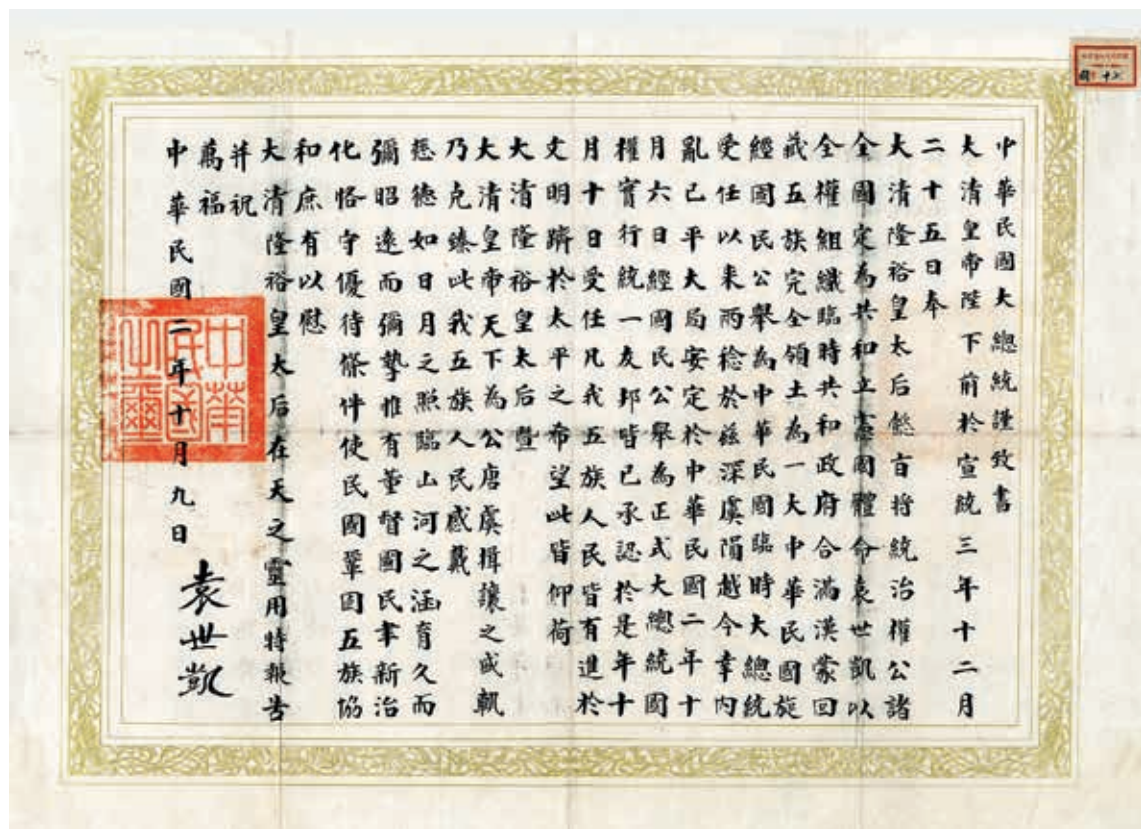 中華民國大總統謹致書
大清皇帝陛下前於宣統三年十二月
二十五日奉
大清隆裕皇太后懿旨將統治權公諸
全國定為共和立憲國體命袁世凱以
全權組織臨時共和政府合滿漢蒙回
藏五族完全領土為一大中華民國旋
經國民公舉為中華民國臨時大總統
受任以來兩稔於茲深虞隕越今幸內
亂已平大局安定於中華民國二年十
月六日經國民公舉為正式大總統國
權實行統一友邦皆已承認於是年十
月十日受任凡我五族人民皆有進於
文明躋於太平之希望此皆仰荷
大清隆裕皇太后暨
大清皇帝天下為公唐虞揖讓之盛軌
乃克臻此我五族人民感戴
懿德如日月之照臨山河之涵育久而
彌昭遠而彌摯惟有董督國民聿新治
化恪守優待條件使民國鞏固五族協
和庶有以慰
大清隆裕皇太后在天之靈用特報告
并祝
萬福
中華民國二年十月九日
袁世凱
中華民國之璽